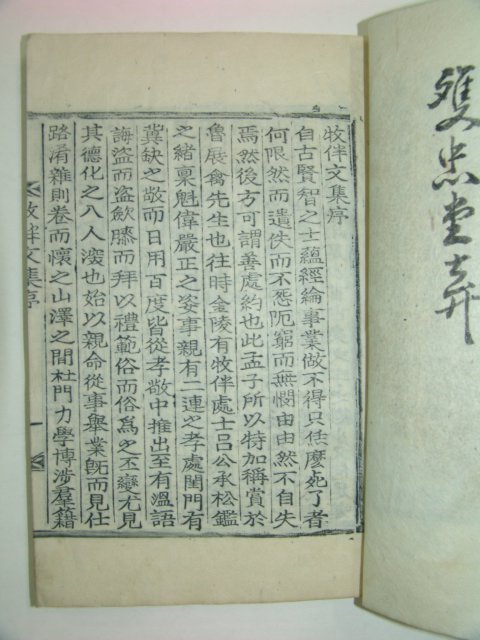 雙忠堂弆
牧伴文集序
自古賢智之士蘊經綸事業做不得只恁麽死了者
何限然而遺佚而不怨阨窮而無憫由由然不自失
焉然後方可謂善處約也此孟子所以特加稱賞於
魯展禽先生也往時金陵有牧伴處士呂公承松鑑
之緖稟魁偉嚴正之姿事親有二連之孝處閨門有
冀缺之敬而日用百度皆從孝敬中推出至有溫語
誨盜而盜飮膝而拜以禮範俗而俗爲之丕變尤見
其德化之入人深也始以親命從事擧業旣而見仕
路淆雜則卷而懷之山澤之間杜門力學博涉羣籍
牧伴文集序 一